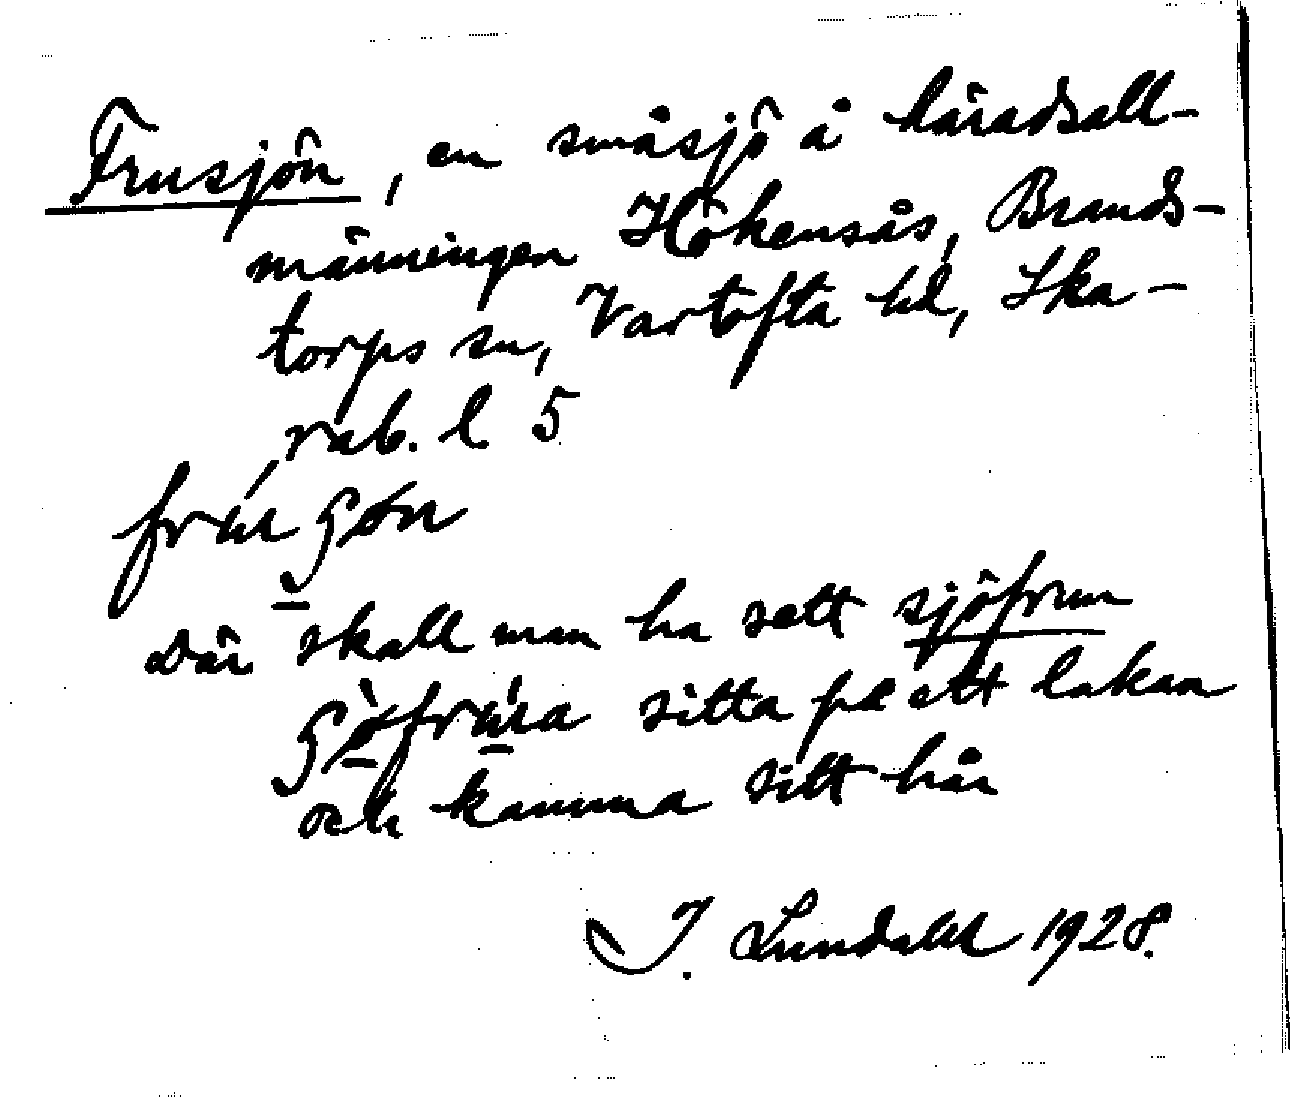 Frusjön, en småsjö å häradsall-
männingen Hökensås, Brands-
torps sn, Vartofta hd, Ska-
rab. l 5
där skall man ha sett sjöfrun
sitta på ett lakan
och kamma sitt hår
J. Lundahl 1928.